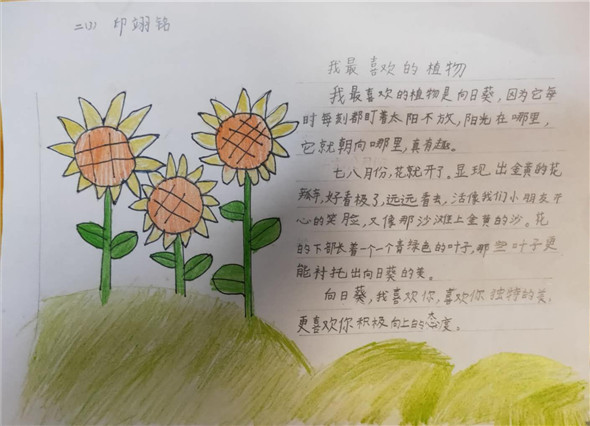 二(1) 邱翊铭
我最喜欢的植物
我最喜欢的植物是向日葵，因为它每
时每刻都盯着太阳不放，阳光在哪里，
它就朝向哪里，真有趣。
七八月份，花就开了。显现出金黄的花
瓣，好看极了，远远看去，活像我们小朋友开
心的笑脸，又像那沙滩上金黄的沙。花
的下部长着一个个青绿色的叶子，那些叶子更
能衬托出向日葵的美。
向日葵，我喜欢你，喜欢你独特的美，
更喜欢你积极向上的态度。